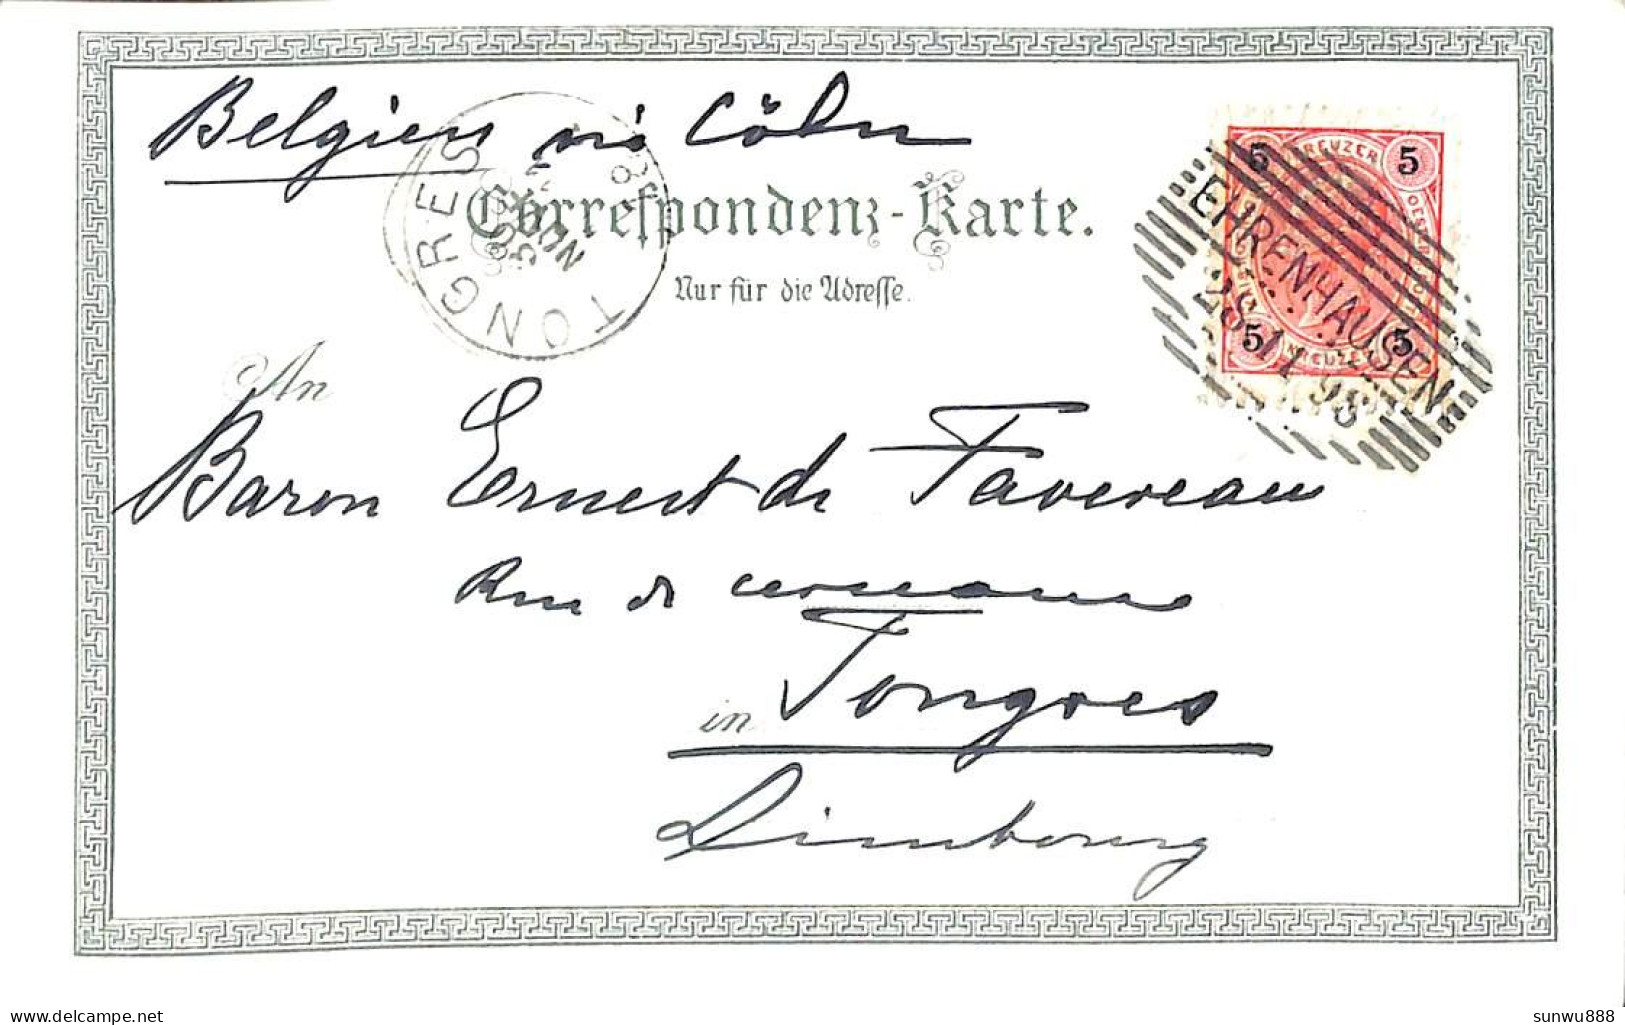 Belgien via Cöln
TONGRES
Correspondenz-Karte.
Nur für die Adresse.
5 KREUZER 5
EHRENHAUSEN
28 11 98
5 KREUZER 5
An
Baron Ernest de Favereau
Rue de
in Tongres
Limbourg
www.delcampe.net
sunwu888